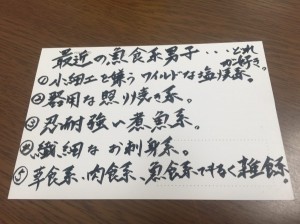 最近の魚食系男子・・・どれが好き。
①小細工を嫌うワイルドな塩焼系。
②器用な照り焼き系。
③忍耐強い煮魚系。
④繊細なお刺身系。
⑤草食系、肉食系、魚食系でもなく雑食系!